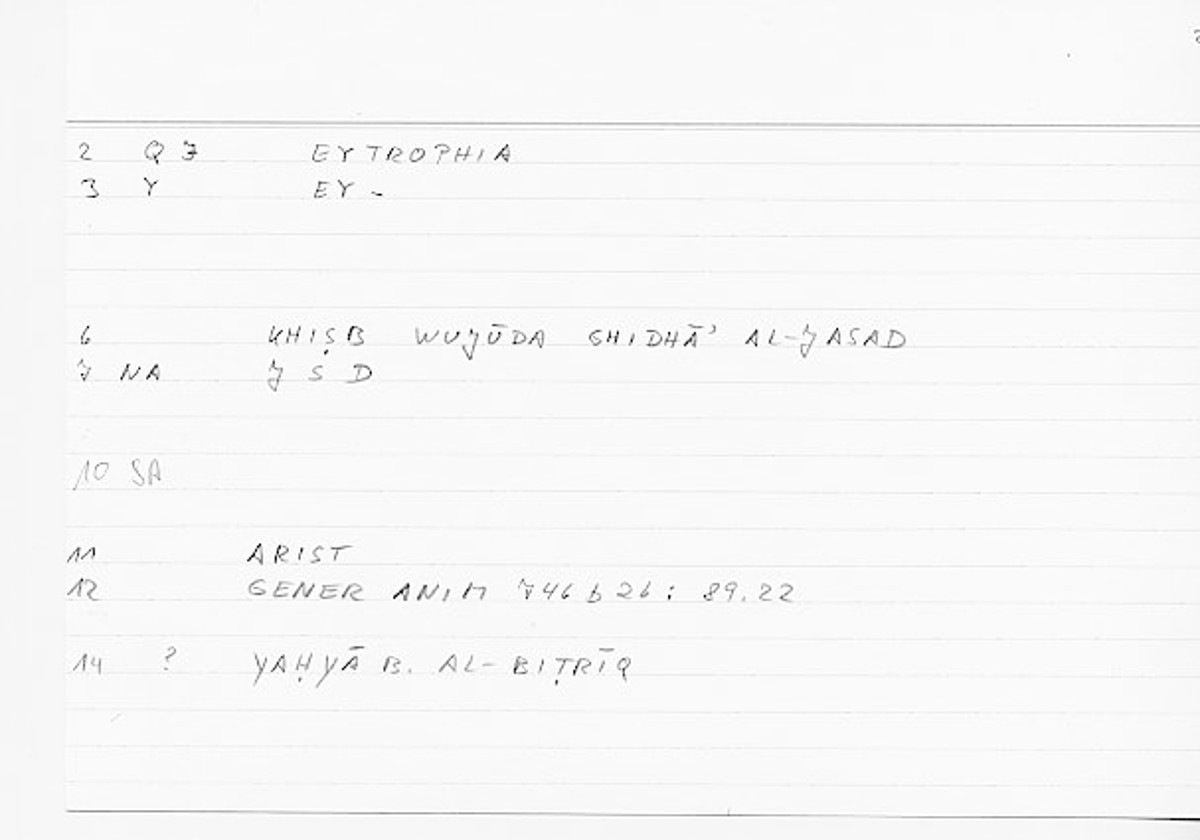 2 Q 7 EYTROPHIA
3 Y EY -
6 KHIṢB WUJŪDA GHIDHĀʾ AL-JASAD
7 NA J S D
10 SA
11 ARIST
12 GENER ANIM 746 b 26 : 89.22
14 ? YAḤYĀ B. AL-BIṬRĪQ